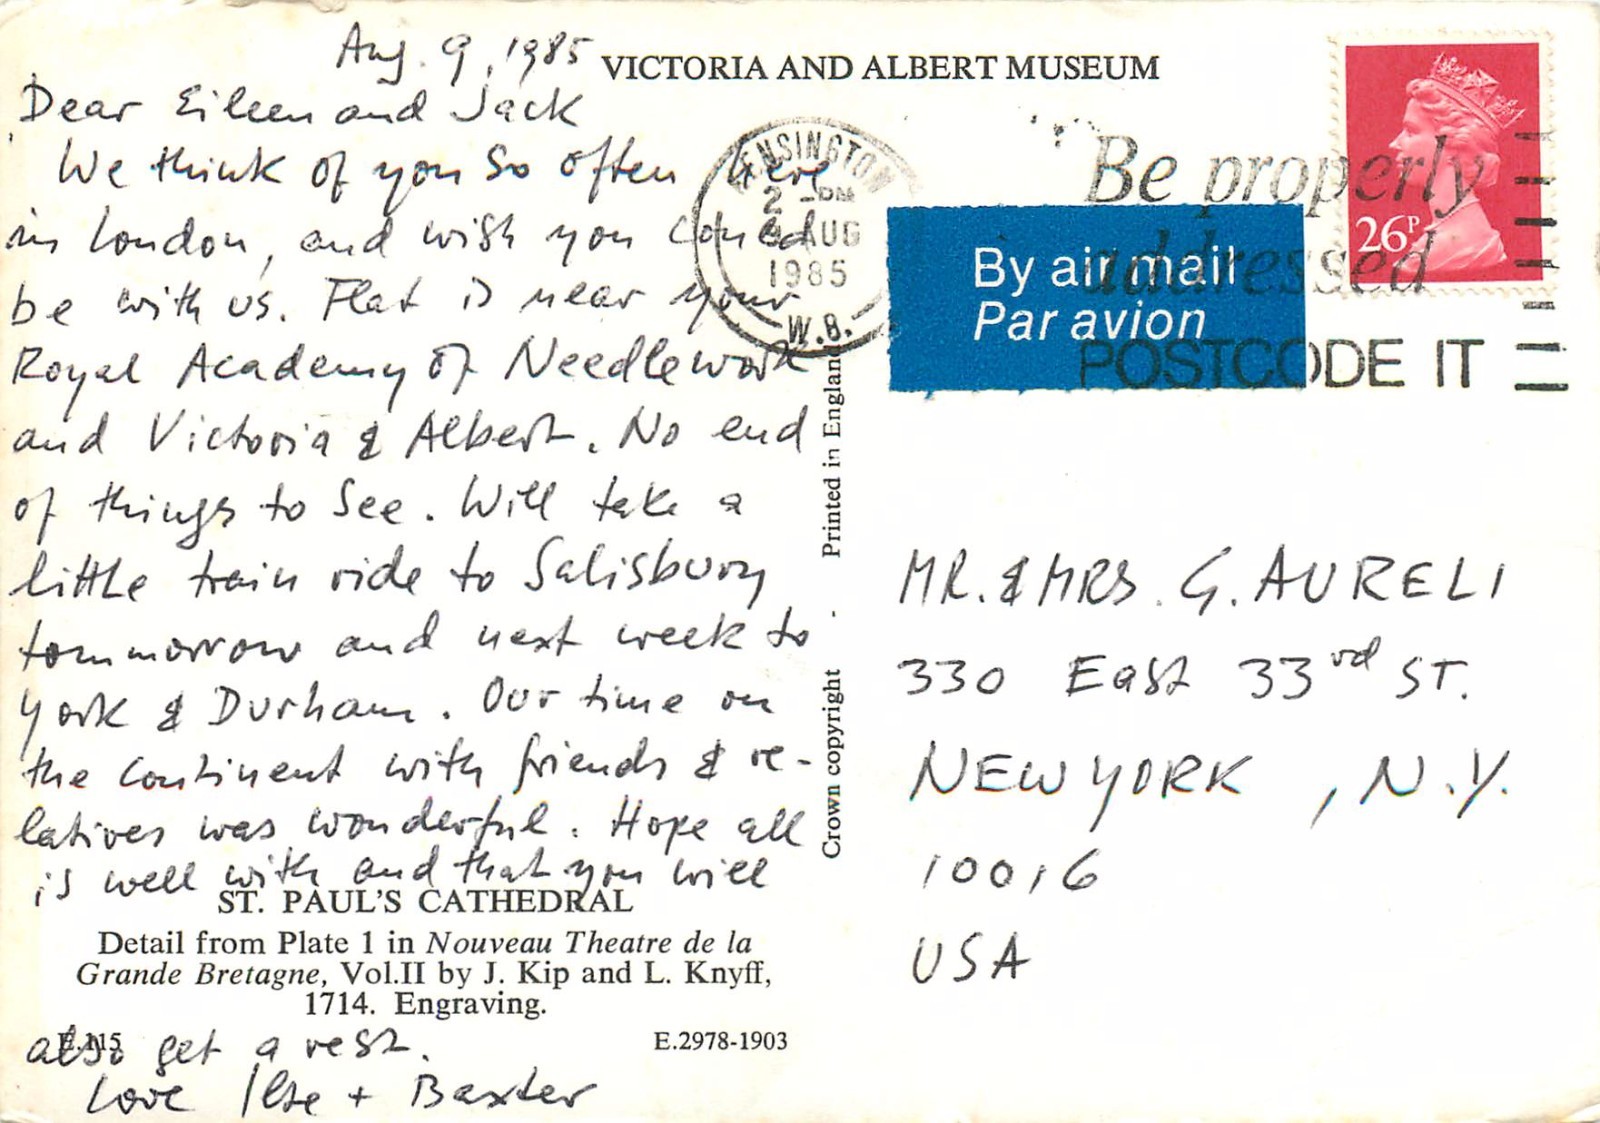 Aug. 9, 1985
Dear Eileen and Jack
We think of you so often here
in London, and wish you could
be with us. Flat is near your
Royal Academy of Needlework
and Victoria & Albert. No end
of things to see. Will take a
little train ride to Salisbury
tommorrow and next week to
York & Durham. Our time on
the continent with friends & re-
latives was wonderful. Hope all
is well with and that you will
ST. PAUL'S CATHEDRAL
Detail from Plate 1 in Nouveau Theatre de la
Grande Bretagne, Vol.II by J. Kip and L. Knyff,
1714. Engraving.
E.115
E.2978-1903
also get a rest.
Love Ilse + Baxter
VICTORIA AND ALBERT MUSEUM
KENSINGTON
2 - PM
9 AUG
1985
W.8.
Be properly
addressed
POSTCODE IT
26P
By air mail
Par avion
Crown copyright
Printed in England
MR. & MRS. G. AURELI
330 East 33rd ST.
NEW YORK, N.Y.
10016
USA